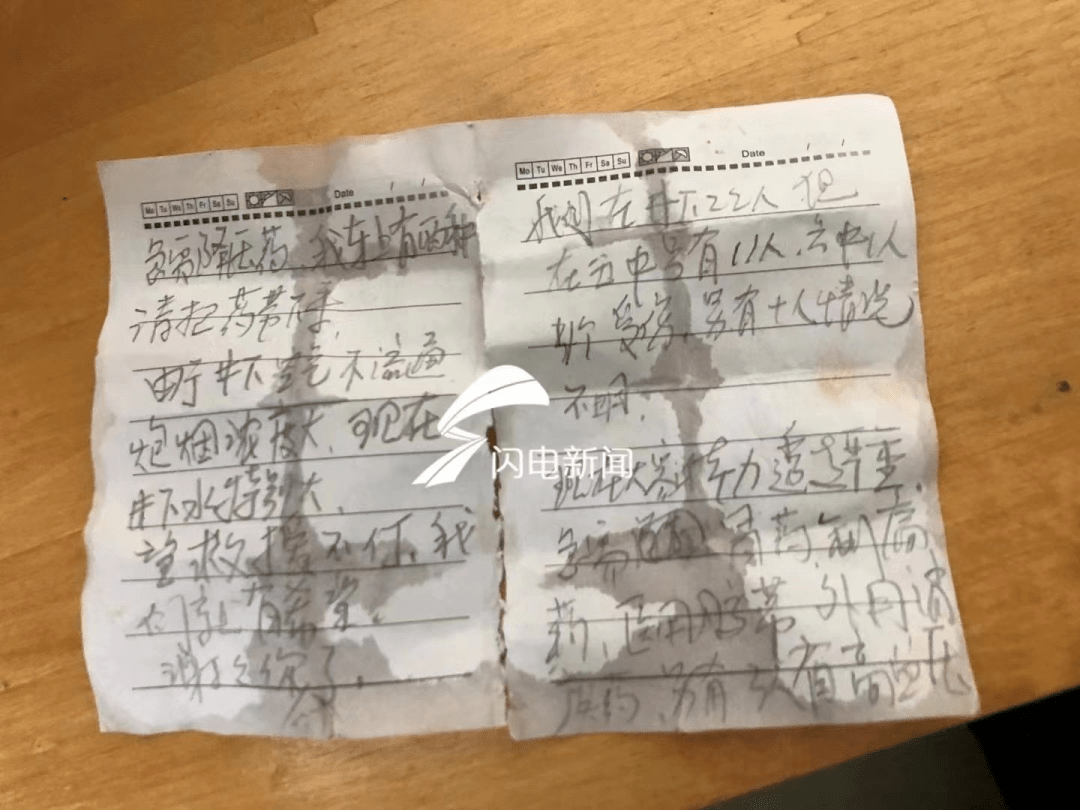 Mo Tu We Th Fr Sa Su Date
我们在井下22人 现
在五中段有11人.六中1人
受伤,另有十人情况
不明;
现在大部分体力透支严重.
急需 胃药,止痛
药,医用胶带,外用消
炎药,另有 人有高血压
Mo Tu We Th Fr Sa Su Date
急需降压药,我车上有两种
请把药带下来,
由于井下空气不流通
炮烟浓度大,现在
井下水特别大,
望救援不停,我
们就有希望.
谢谢你们了,
闪电新闻